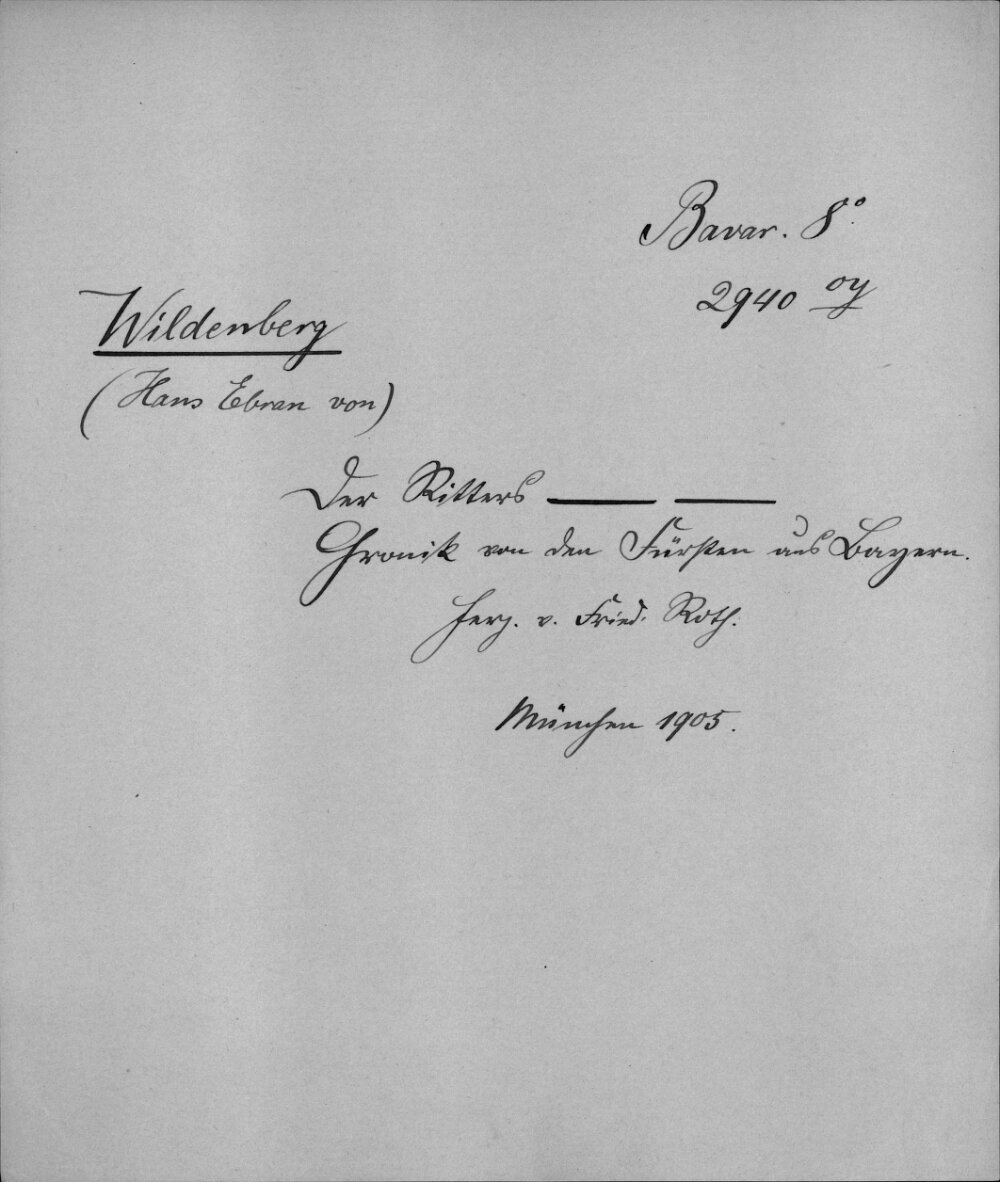 Bavar. 8°.
2940 oy
Wildenberg
(Hans Ebran von)
Der Ritters — —
Chronik von den Fürsten aus Bayern.
Herg. v. Fried. Roth.
München 1905.